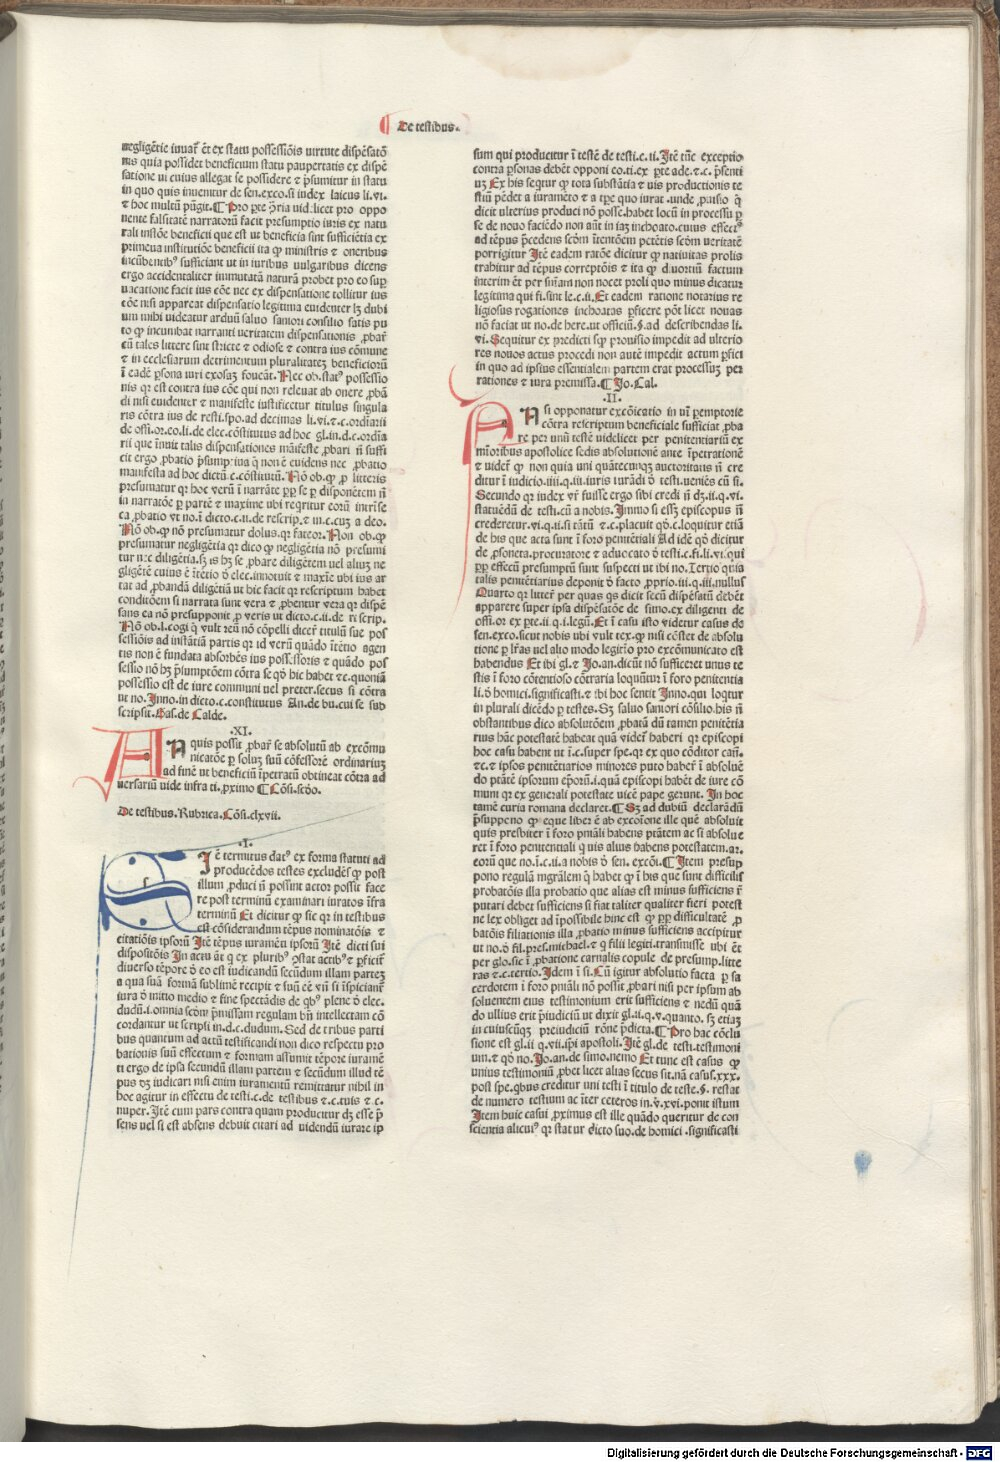 De testibus.
negligētie iuuar̄ ēt ex statu possessiōis uirtute dispēsatō
nis quia possidet beneficium statu paupertatis ex dispē
satione ut cuius allegat se possidere & p̄sumitur in statu
in quo quis inuenitur de sen.exco.si iudex laicus li.vi.
& hoc multū pūgit. ¶ Pro pte p̄ria uid.licet pro oppo
nente falsitatē narratorū facit presumptio iuris ex natu
rali instōe beneficii que est ut beneficia sint sufficiētia ex
primeua institutiōe beneficii ita ꝙ ministris & oneribus
incūbentib⁹ sufficiant ut in iuribus uulgaribus dicens
ergo accidentaliter immutatā naturā probet pro eo sup
uacatione facit ius cōe nec ex dispensatione tollitur ius
cōe nisi appareat dispensatio legitima euidenter lꝫ dubi
um mihi uideatur arduū saluo saniori consilio satis pu
to ꝙ incumbat narranti ueritatem dispensationis ꝓbar̄
cū tales littere sint stricte & odiose & contra ius cōmune
& in ecclesiarum detrimentum pluralitateꝫ beneficiorū
ī eadē pſona iuri exosaꝫ foueāt. Nec ob.stat⁹ possessio
nis qr est contra ius cōe qui non releuat ab onere ꝓbā
di nisi euidenter & manifeste iustificetur titulus singula
ris cōtra ius de resti.spo.ad decimas li.vi.&.c.ordīarii
de offi.or.eo.li.de elec.cōstitutus ad hoc gl.in.d.c.ordīa
rii que īnuit talis dispensationes māifeste ꝓbari n̄ suffi
cit ergo ꝓbatio p̄sumptiua q̄ non ē euidens nec ꝓbatio
manifesta ad hoc dictū.c.cōstitutū. Nō ob.ꝙ ꝑ litteris
presumatur qr hoc verū ī narrāte ꝑꝑ se ꝑ disponētem n̄
in narratōe ꝑ partē & maxime ubi reqritur eorū intrīse
ca ꝓbatio vt no.ī dicto.c.ii.de rescrip.& in.c.cuꝫ a deo.
Nō ob.ꝙ nō presumatur dolus.qr fateor. Non ob.ꝙ
presumatur negligētia qr dico ꝙ negligētia nō presumi
tur nec diligētia.sꝫ is hꝫ se ꝓbare diligētem uel aliuꝫ ne
gligētē cuius ē ītētio ȯ elec.innotuit & maxīe ubi ius ar
tat ad ꝓbandā diligētiā ut hic facit qr rescriptum habet
conditōem si narrata sunt vera & ꝓbentur vera qr dispē
sans ea nō presupponit ꝑ veris ut dicto.c.ii.de rescrip.
Nō ob.l.cogi q̄ vult reū nō cōpelli dicer̄ titulū sue pos
sessiōis ad instātiā partis qr id verū quādo ītētio agen
tis non ē fundata absorbēs ius possessoris & quādo pos
sessio nō hꝫ p̄sumptōem cōtra se qȯ hic habet &c.quoniā
possessio est de iure communi uel preter.secus si cōtra
ut no.Inno.in dicto.c.constitutus An.de bu.cui se sub
scripsit.Gas.de Calde.
.XI.
An quis possit ꝓbar̄ se absolutū ab excōmu
nicatōe ꝑ soluꝫ suū cōfessorē ordinariuꝫ
ad finē ut beneficiū īpetratū obtineat cōtra ad
versariū uide infra ti.proximo ¶ Cōsi.scdo.
De testibus. Rubrica. Cōsi.clxvii.
.I.
SI ē termīus dat⁹ ex forma statuti ad
producēdos testes excludēs ꝙ post
illum ꝓduci n̄ possint actor possit face
re post terminū examinari iuratos īfra
terminū Et dicitur ꝙ sic qr in testibus
est cōsiderandum tēpus nominatōis &
citatiōis ipsorū Itē tēpus iuramēti ipsorū Itē dicti sui
dispositōis In actu āt q̄ ex pluribꝰ ꝯstat actibꝰ & pficit̄
diuerso tēpore ȯ eo est iudicandū secūdum illam parteꝫ
a qua suā formā sublimē recipit & suū eē vn̄ si īspiciant̄
iura ȯ initio medio & fine spectādis de qbꝰ plene ȯ elec.
dudū.i.omnia scōm p̄missam regulam bn̄ intellectam cō
cordantur ut scripsi in.d.c.dudum. Sed de tribus parti
bus quantum ad actū testificandi non dico respectu pro
bationis suū effectum & formam assumit tēpore iuramē
ti ergo de ipsa secundū illam partem & secūdum illud tē
pus dꝫ iudicari nisi enim iuramentū remittatur nihil in
hoc agitur in effectu de testi.c.de testibus &.c.tuis &.c.
nuper. Itē cum pars contra quam producitur dꝫ esse p̄
sens uel si est absens debuit citari ad uidendū iurare ip
sum qui producitur ī testē de testi.c.ii. Itē tūc exceptio
contra psonas debēt opponi eo.ti.ex pte ade.&.c.p̄senti
uꝫ Ex his seqtur ꝙ tota substātia & uis productionis te
stiū pēdet a iuramēto & a tpe quo iurat.unde ꝓuisio q̄
dicit ulterius produci nō posse.habet locū in processu ꝑ
se de nouo faciēdo non aūt in iaꝫ inchoato.cuius effect⁹
ad tēpus p̄cedens scōm ītentōem petētis scōm ueritatē
porrigitur Itē eadem ratōe dicitur ꝙ natiuitas prolis
trahitur ad tēpus correptōis & ita ꝙ diuortiū factum
interim ēt per sniam non nocet proli quo minus dicatur
legitima qui fi.sint le.c.ii. Et eadem ratione notarius re
ligiosus rogationes inchoatas ꝑficere pōt licet nouas
nō faciat ut no.de here.ut officiū.§.ad describendas li.
vi. Sequitur ex predicti scꝫ prouisio impedit ad ulterio
res nouos actus procedi non autē impedit actum pfici
in quo ad ipsius essentialem partem erat processuꝫ per
rationes & iura premissa. ¶ Jo.Cal.
.II.
An si opponatur excōicatio in uī pemptorie
cōtra rescriptum beneficiale sufficiat ꝓba
re per unū testē videlicet per penitentiariū ex
mīoribus apostolice sedis absolutionē ante īpetrationē
& uidet̄ ꝙ non quia uni quātecunqꝫ auctoritatis n̄ cre
ditur ī iudicio.iiii.q.iii.iuris iurādi ȯ testi.ueniēs cū si.
Secundo qr iudex vr̄ fuisse ergo sibi credi n̄ dꝫ.ii.q.vi.
statuēdū de testi.cū a nobis. Immo si essꝫ episcopus n̄
crederetur.vi.q.ii.si tātū &.c.placuit qȯ.c.loquitur etiā
de his que acta sunt ī foro penitētiali Ad idē qȯ dicitur
de ꝑsoneta.procuratore & aduocato ȯ testi.c.fi.li.vi.qui
ꝑꝑ effectū presumptū sunt suspecti ut ibi no. Tertio quia
talis penitētiarius deponit ȯ facto ꝓprio.iii.q.iii.nullus
Quarto qr litter̄ per quas qs dicit secū dispēsatū debēt
apparere super ipsa dispēsatōe de simo.ex diligenti de
offi.or ex pte.ii q.i.legū. Et ī casu isto videtur casus de
sen.exco.sicut nobis ubi vult tex.ꝙ nisi cōstet de absolu
tione ꝑ lras uel alio modo legitīo pro excōmunicato est
habendus Et ibi gl.& Jo.an.dicūt nō sufficeret unus te
stis ī foro cōtentioso cōtraria loquūtur ī foro penitentia
li.ȯ homici.significasti.& ibi hoc sentit Inno.qui loqtur
in plurali dicēdo ꝑ testes. Sꝫ saluo saniori cōsilio.his n̄
obstantibus dico absolutōem ꝓbatā dū tamen penitētia
rius hāc potestatē habeat quā videt̄ haberi qr episcopi
hoc casu habent ut ī.c.super spe.qr ex quo cōditor can̄.
&c.& ipsos penitētiarios minores puto haber̄ ī absoluē
do ptātē ipsorum epōrū.i.quā episcopi habēt de iure cō
muni qr ex generali potestate uicē pape gerunt. In hoc
tamē curia romana declaret. ¶ Sꝫ ad dubiū declarādū
p̄suppeno ꝙ eque liber ē ab excōione ille quē absoluit
quis presbiter ī foro pniali habens ptātem ac si absolue
ret ī foro penitentiali q̄ uis alius habens potestatem.ar.
eorū que no.ī.c.ii.a nobis ȯ sen.excōi. ¶ Item presup
pono regulā mgrālem q̄ habet ꝙ ī his que sunt difficilis
probatōis illa probatio que alias est minus sufficiens r̄
putari debet sufficiens si fiat taliter qualiter fieri potest
ne lex obliget ad īpossibile hinc est ꝙ ꝑꝑ difficultatē ꝓ
batōis filiationis illa ꝓbatio minus sufficiens accipitur
ut no.ȯ fil.pres.michael.& q̄ filii legiti.transmisse ubi ēt
per glo.sic ī ꝓbatione carnalis copule de presump.litte
ras &.c.tertio. Idem ī si. Cū igitur absolutio facta ꝑ sa
cerdotem ī foro pniali nō possit ꝓbari nisi per ipsum ab
soluentem eius testimonium erit sufficiens & nedū quā
do ullius erit p̄iudiciū ut dixit gl.ii.q.v.quanto. sꝫ etiaꝫ
in cuiuscūqꝫ preiudiciū rōne p̄dicta. ¶ Pro hac cōclu
sione est gl.ii q.vii.ipsi apostoli. Itē gl.de testi.testimoni
um.& qȯ no. Jo.an.de simo.nemo Et tunc est casus ꝙ
unius testimoniū ꝓbet licet alias secus sit.nā casus.xxx.
post spe.qbus creditur uni testi ī titulo de teste.§. restat
de numero testium ac īter ceteros in.ꝟ.xvi.ponit istum
Item huic casui ꝓximus est ille quādo queritur de con
scientia alicui⁹ qr statur dicto suo.de homici.significasti
Digitalisierung gefördert durch die Deutsche Forschungsgemeinschaft - DFG